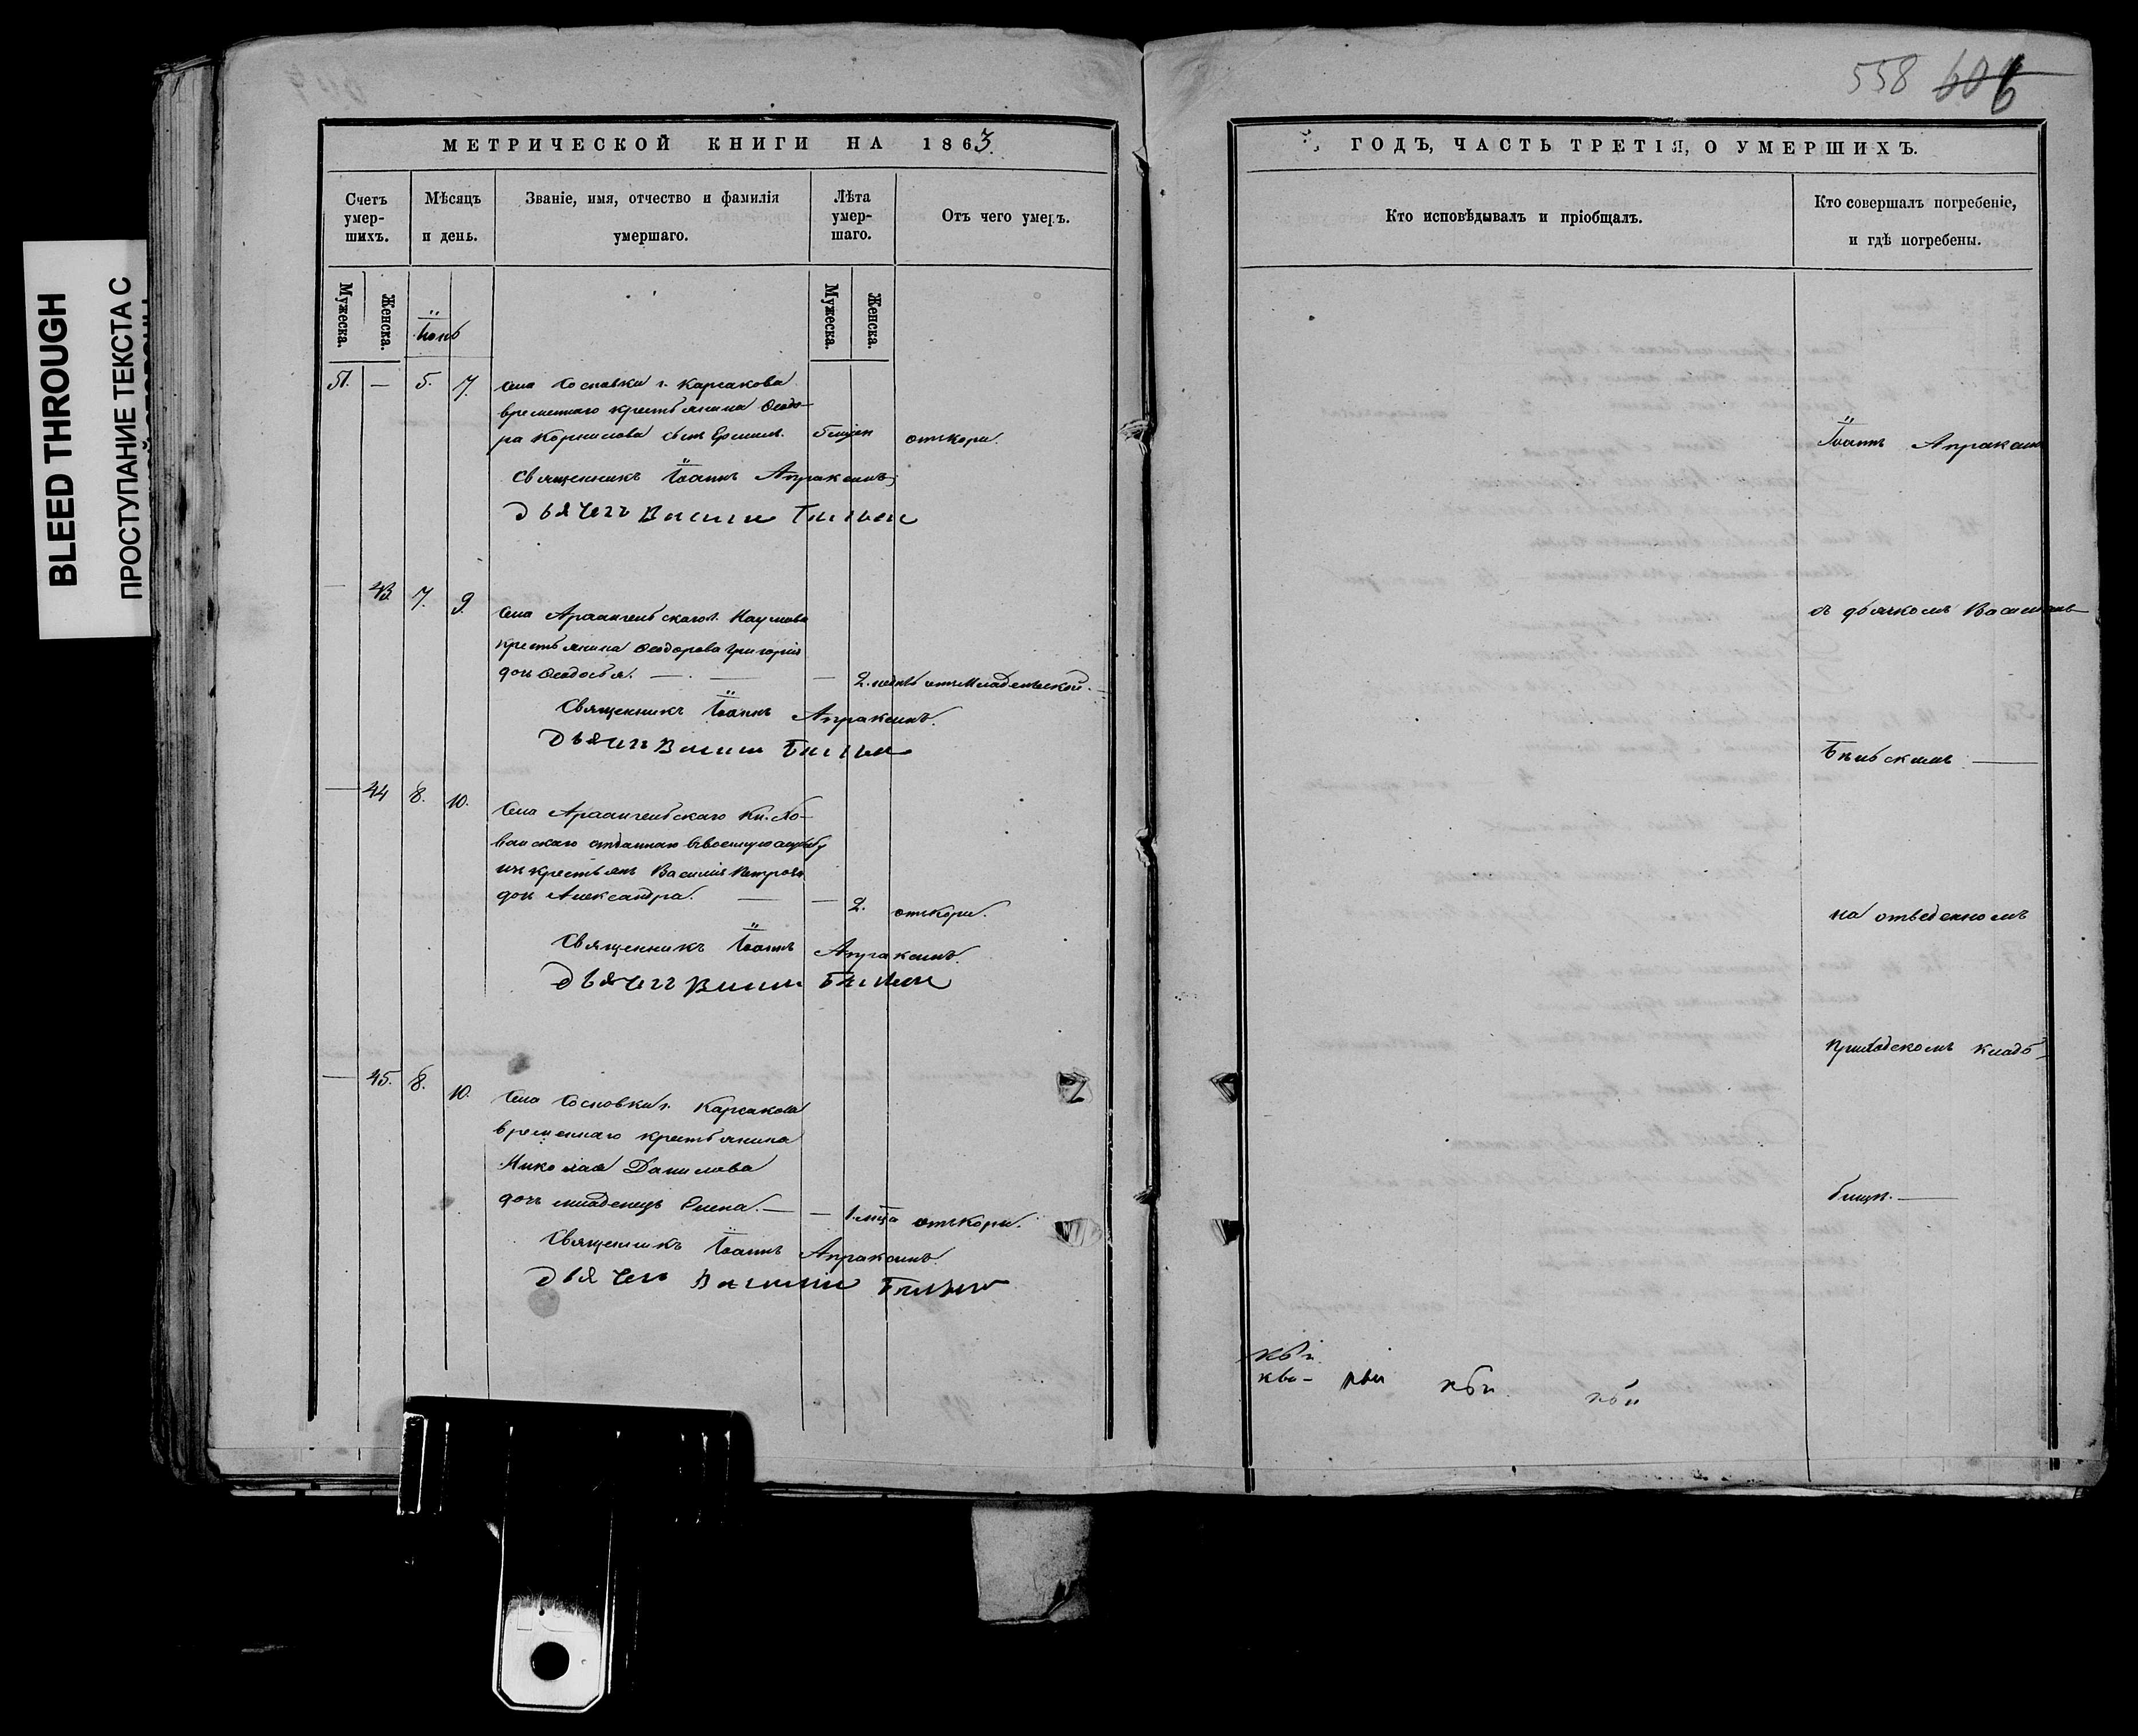 BLEED THROUGH
ПРОСТУПАНИЕ ТЕКСТА С
558 606
МЕТРИЧЕСКОЙ КНИГИ НА 1863.
Счетъ умер-шихъ.
Мѣсяцъ и день.
Званіе, имя, отчество и фамилія умершаго.
Лѣта умер-шаго.
Отъ чего умеръ.
Мужеска.
Женска.
Мужеска.
Женска.
Іюнь
51. — 5. 7. Села Сосновки г. Карсакова
временнаго крестьянина Ѳеодо-
ра Корнилова сынъ Ермилъ. отъ кори.
Священникъ Іоаннъ Апраксинъ
Дьячекъ Василій
— 43. 7. 9. Села Архангельскаго г. Наумова
крестьянина Ѳеодорова Григорія
дочь Ѳеодосья. — — 2. недѣль отъ младенческой.
Священникъ Іоаннъ Апраксинъ.
Дьячекъ Василій
— 44 8. 10. Села Архангельскаго Кн. Хо-
ванскаго отданнаго въ военную службу
изъ крестьянъ Василія Петрова
дочь Александра. — — 2. отъ кори.
Священникъ Іоаннъ Апраксинъ.
Дьячекъ Василій
— 45. 8. 10. Села Сосновки г. Карсакова
временнаго крестьянина
Николая Данилова
дочь младенецъ Елена. — — 1. мца отъ кори.
Священникъ Іоаннъ Апраксинъ.
Дьячекъ Василій
ГОДЪ, ЧАСТЬ ТРЕТІЯ, О УМЕРШИХЪ.
Кто исповѣдывалъ и пріобщалъ.
Кто совершалъ погребеніе,
и гдѣ погребены.
Іоаннъ Апраксинъ
съ дьячкомъ Василіемъ
Бѣльскимъ —
на отведенномъ
приходскомъ кладб-
бищѣ. —